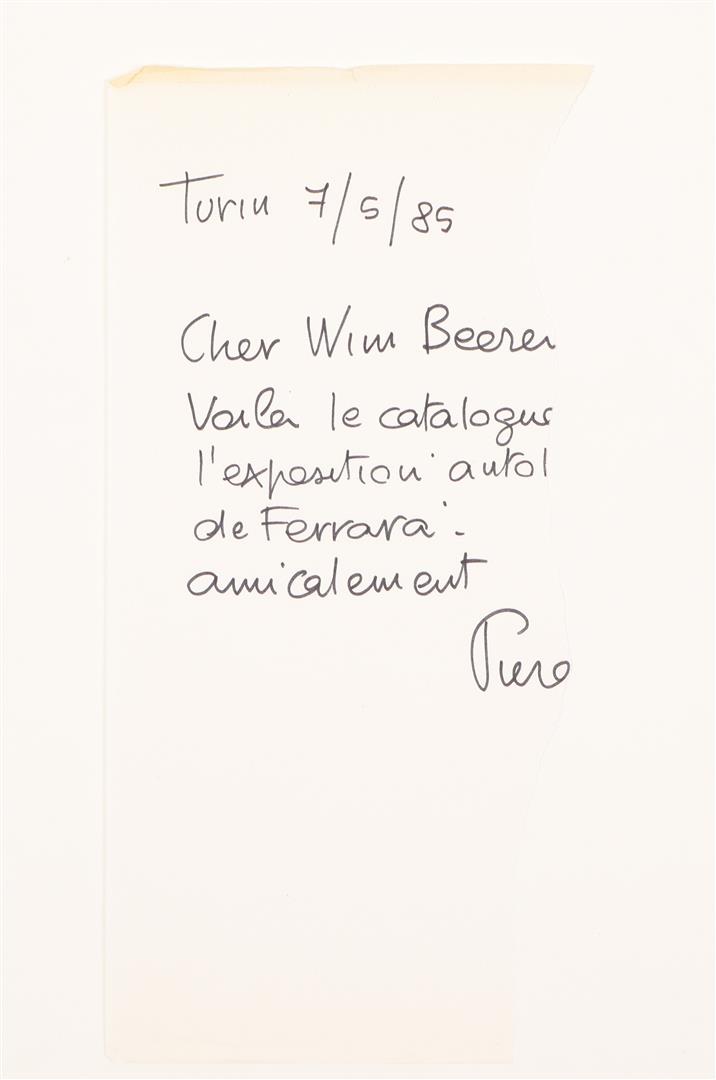 Turin 7/5/85
Cher Wim Beeren
Voilà le catalogue
l'exposition autol
de Ferrara.
amicalement
Piero